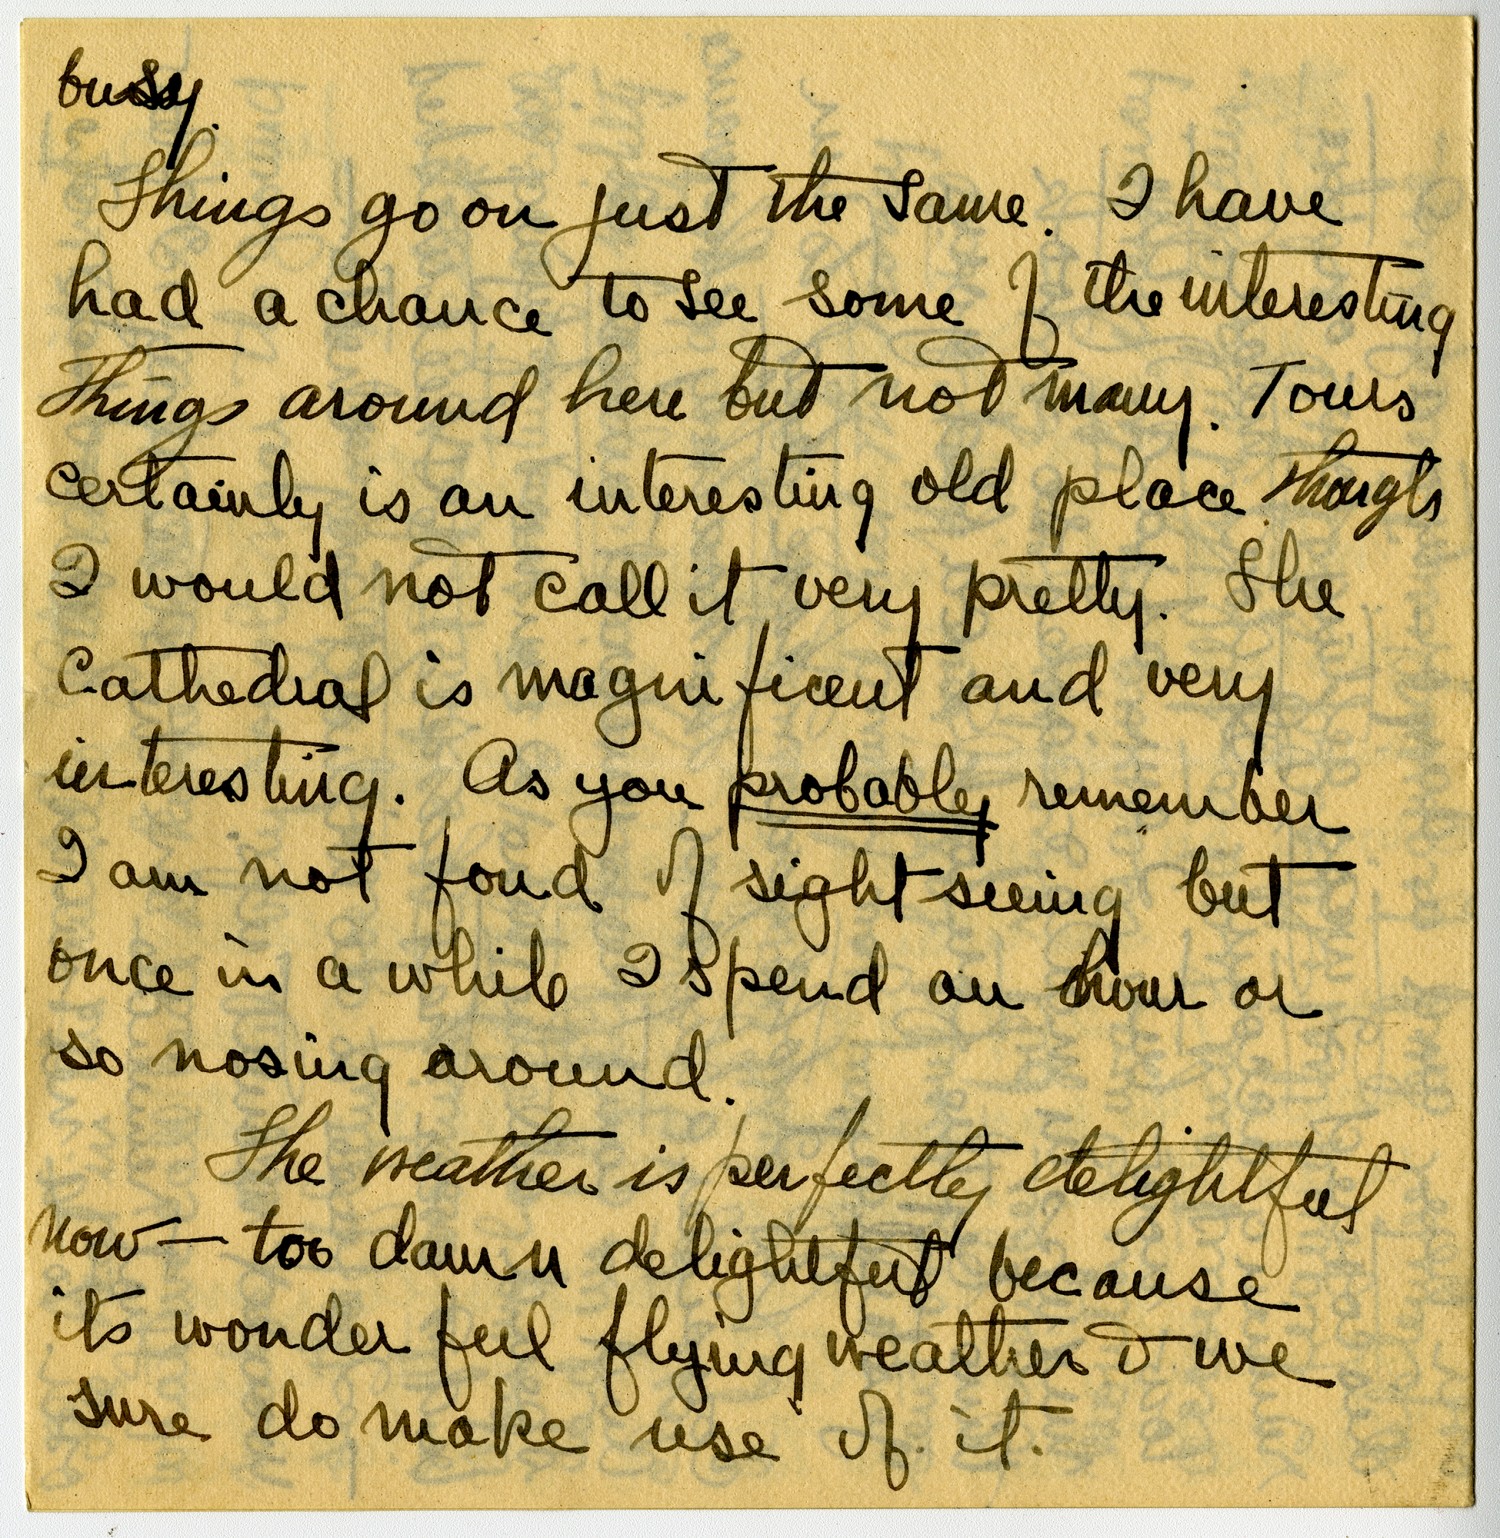 busy.
Things go on just the same. I have
had a chance to see some of the interesting
things around here but not many. Tours
certainly is an interesting old place though
I would not call it very pretty. The
Cathedral is magnificent and very
interesting. As you probably remember
I am not fond of sight seeing but
once in a while I spend an hour or
so nosing around.
The weather is perfectly delightful
now — too damn delightful because
its wonderful flying weather & we
sure do make use of it.